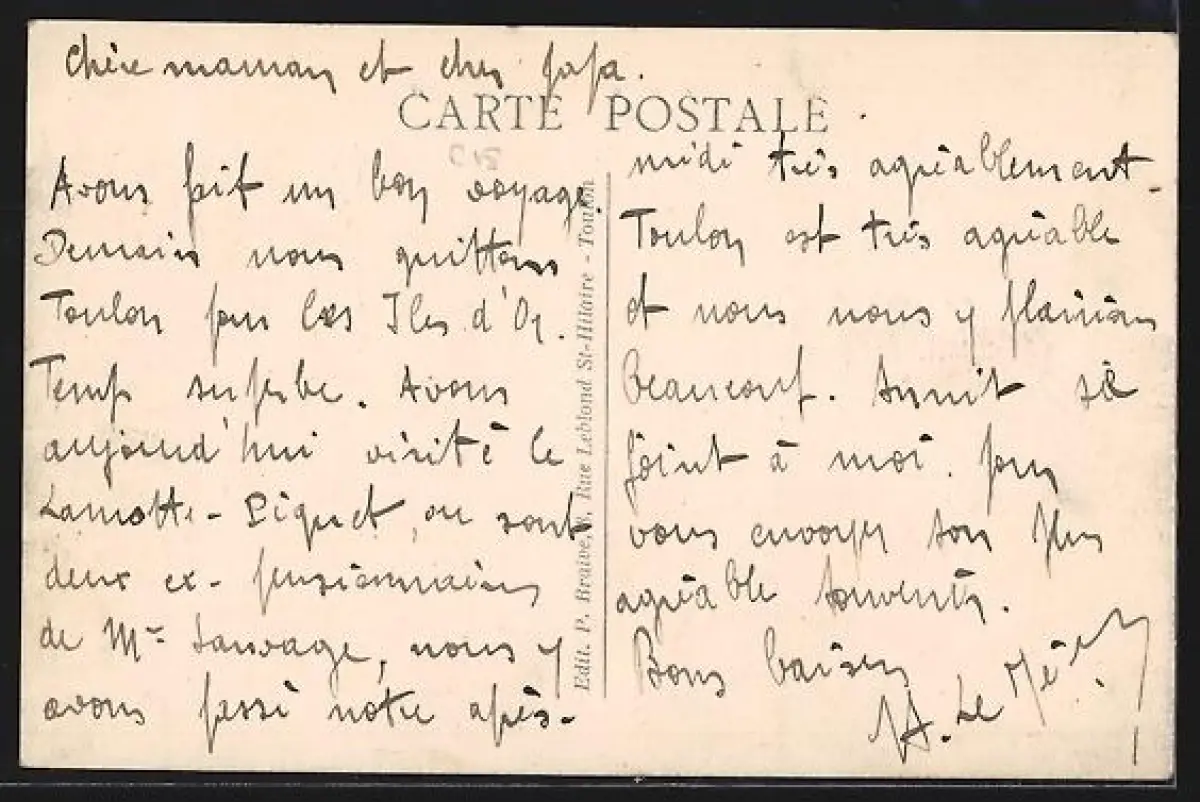 Chère maman et cher papa.
CARTE POSTALE
C15
Avons fait un bon voyage.
Demain nous quittons
Toulon pour les Iles d'Or.
Temps superbe. Avons
aujourd'hui visité le
Lamotte-Piquet, ou sont
deux ex-pensionnaires
de Mr Sauvage, nous y
avons passé notre après-
Edit. P. Braive, Rue Leblond St-Hilaire - Toulon
midi très agréablement.
Toulon est très agréable
et nous nous y plairions
beaucoup. se
joint à moi. pour
vous envoyer son plus
agréable souvenir.
Bons baisers
A. Le